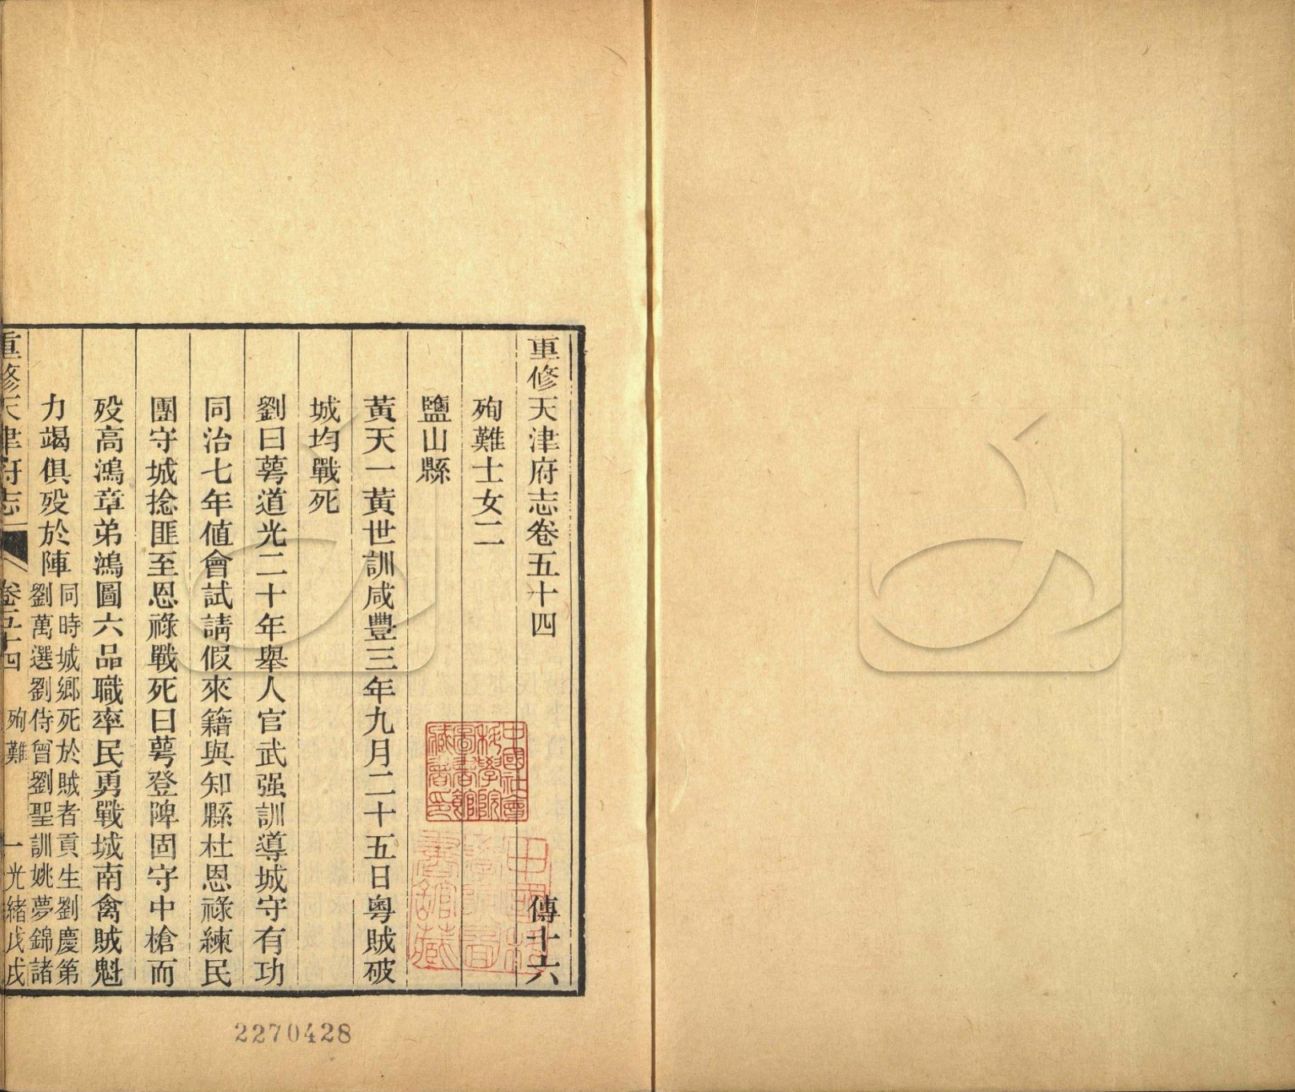 重修天津府志卷五十四 傳十六
殉難士女二
鹽山縣
黃天一黃世訓咸豐三年九月二十五日粵賊破
城均戰死
劉曰萼道光二十年舉人官武强訓導城守有功
同治七年値會試請假來籍與知縣杜恩祿練民
團守城捻匪至恩祿戰死曰萼登陴固守中槍而
殁高鴻章弟鴻圖六品職率民勇戰城南禽賊魁
力竭俱殁於陣
同時城鄉死於賊者貢生劉慶第
劉萬選劉侍曾劉聖訓姚夢錦諸
重修天津府志 卷五十四 殉難 一 光緒戊戌
中國社會
科學院
圖書館
藏書印
2270428